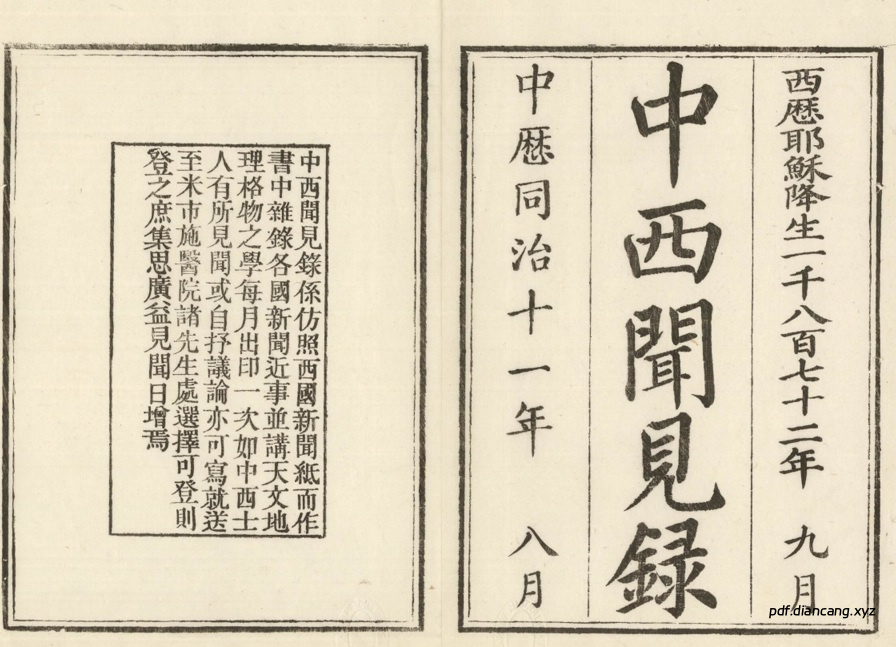 西歷耶穌降生一千八百七十二年 九月
中西聞見録
中歷同治十一年 八月
中西聞見錄係仿照西國新聞紙而作
書中雜錄各國新聞近事並講天文地
理格物之學每月出印一次如中西士
人有所見聞或自抒議論亦可寫就送
至米市施醫院諸先生處選擇可登則
登之庶集思廣益見聞日增焉
pdf.diancang.xyz